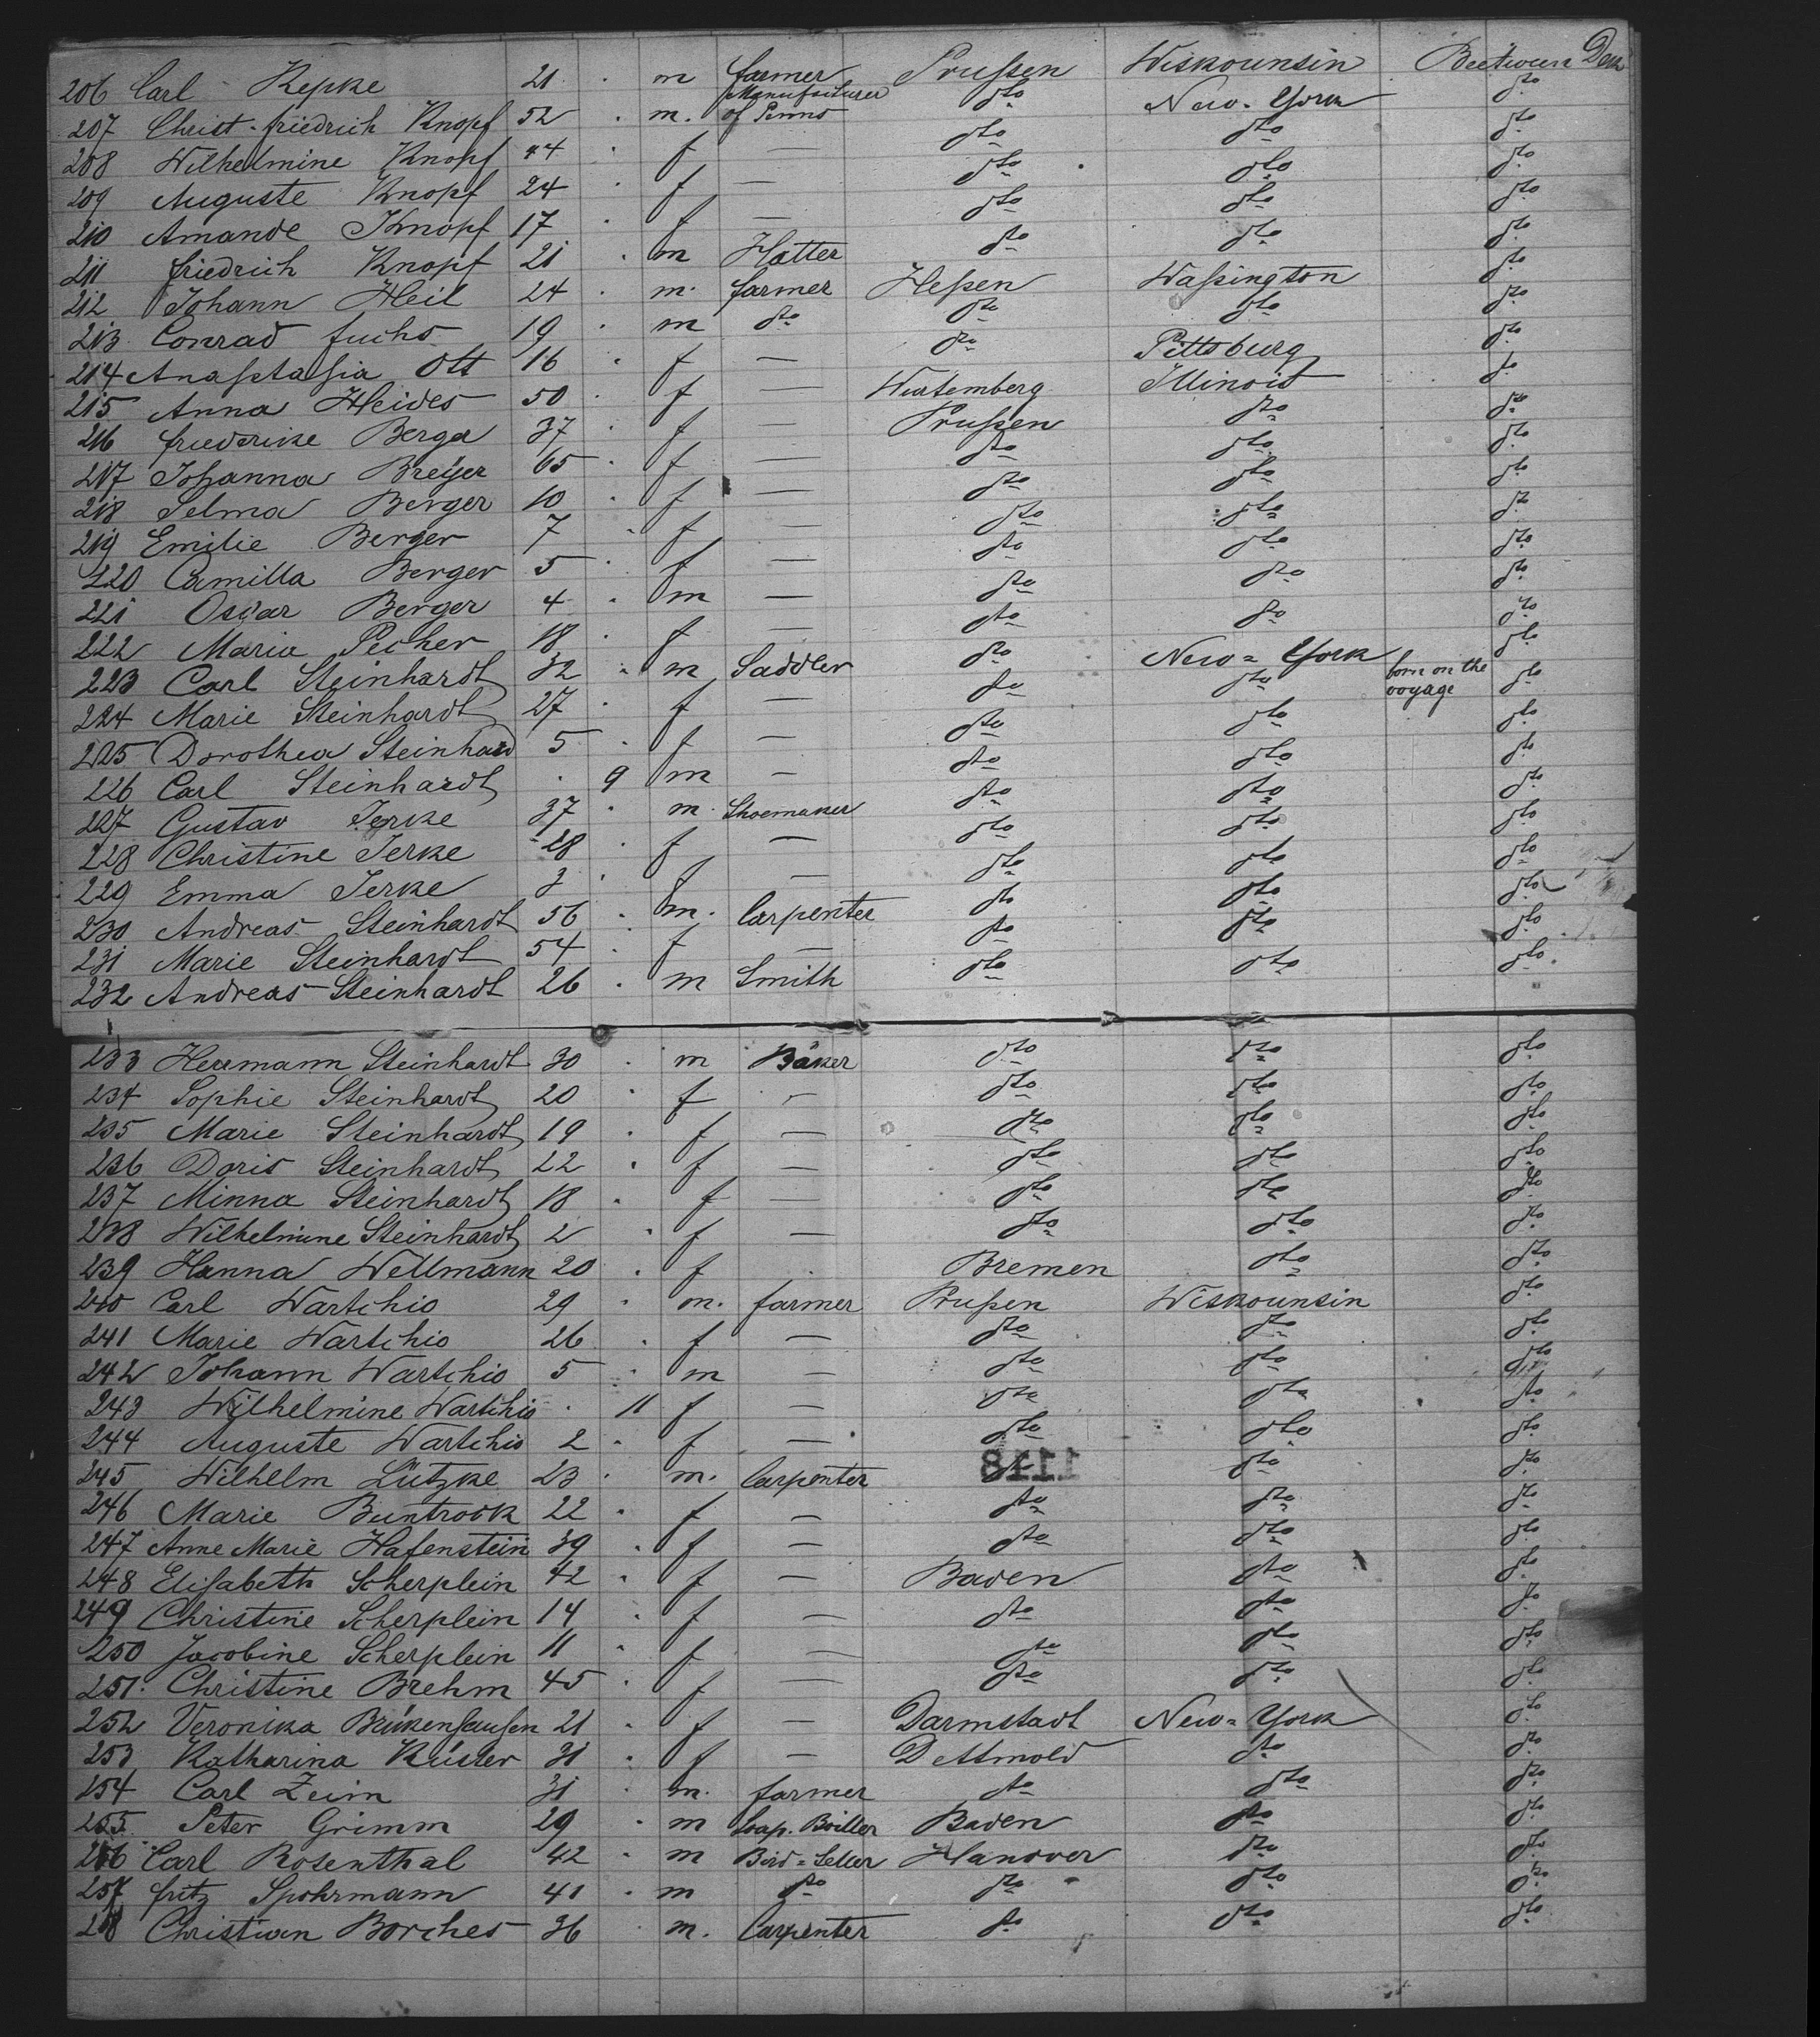 206 Carl Kepke 21 . m farmer Prußen Wiskounsin Beetween Deck
207 Christ. friedrich Knopf 52 . m. Manufacturer of Penns dto New-York dto
208 Wilhelmine Knopf 44 . f — dto dto dto
209 Auguste Knopf 24 . f — dto dto dto
210 Amande Knopf 17 . f — dto dto dto
211 friedrich Knopf 21 . m Hatter dto dto dto
212 Johann Heil 24 . m. farmer Heßen Waßington dto
213 Conrad fuchs 19 . m dto dto dto dto
214 Anaſtaſia Ott 16 . f — dto Pittsburg dto
215 Anna Heides 50 . f — Wurtemberg Illinois dto
216 friederike Berger 37 . f — Prußen dto dto
217 Johanna Breyer 65 . f — dto dto dto
218 Selma Berger 10 . f — dto dto dto
219 Emilie Berger 7 . f — dto dto dto
220 Camilla Berger 5 . f — dto dto dto
221 Oscar Berger 4 . m — dto dto dto
222 Maria Pecher 18 . f — dto dto dto
223 Carl Steinhardt 32 . m Saddler dto New=York dto
224 Marie Steinhardt 27 . f — dto dto born on the voyage dto
225 Dorothea Steinhard 5 . f — dto dto dto
226 Carl Steinhardt . 9 m — dto dto dto
227 Gustav Jerke 37 . m. Shoemaker dto dto dto
228 Christine Jerke 28 . f — dto dto dto
229 Emma Jerke 3 . f — dto dto dto
230 Andreas Steinhardt 56 . m. Carpenter dto dto dto
231 Marie Steinhardt 54 . f — dto dto dto
232 Andreas Steinhardt 26 . m Smith dto dto dto
233 Hermann Steinhardt 30 . m Bäker dto dto dto
234 Sophie Steinhardt 20 . f — dto dto dto
235 Marie Steinhardt 19 . f — dto dto dto
236 Doris Steinhardt 22 . f — dto dto dto
237 Minna Steinhardt 18 . f — dto dto dto
238 Wilhelmine Steinhardt 2 . f — dto dto dto
239 Hanna Wellmann 20 . f . Bremen dto dto
240 Carl Wartchio 29 . m. farmer Prußen Wiskounsin dto
241 Marie Wartchio 26 . f — dto dto dto
242 Johann Wartchio 5 . m — dto dto dto
243 Wilhelmine Wartchio . 11 f — dto dto dto
244 Auguste Wartchio 2 . f — dto dto dto
245 Wilhelm Lützke 23 . m. Carpenter dto dto dto
246 Marie Buntrock 22 . f — dto dto dto
247 Anne Marie Hafenstein 39 . f — dto dto dto
248 Eliſabeth Scherplein 42 . f — Baden dto dto
249 Christine Scherplein 14 . f — dto dto dto
250 Jacobine Scherplein 11 . f — dto dto dto
251. Christine Brehm 45 . f — dto dto dto
252 Veronika Brükenhausen 21 . f — Darmstadt New=York dto
253 Katharina Küster 31 . f — Dettmold dto dto
254 Carl Zeim 31 . m. farmer dto dto dto
255 Peter Grimm 29 . m Soap. Boiller Baden dto dto
256 Carl Rosenthal 42 . m Bird=Seller Hanover dto dto
257 fritz Spohrmann 41 . m dto dto dto dto
258 Christian Borches 36 . m. Carpenter dto dto dto